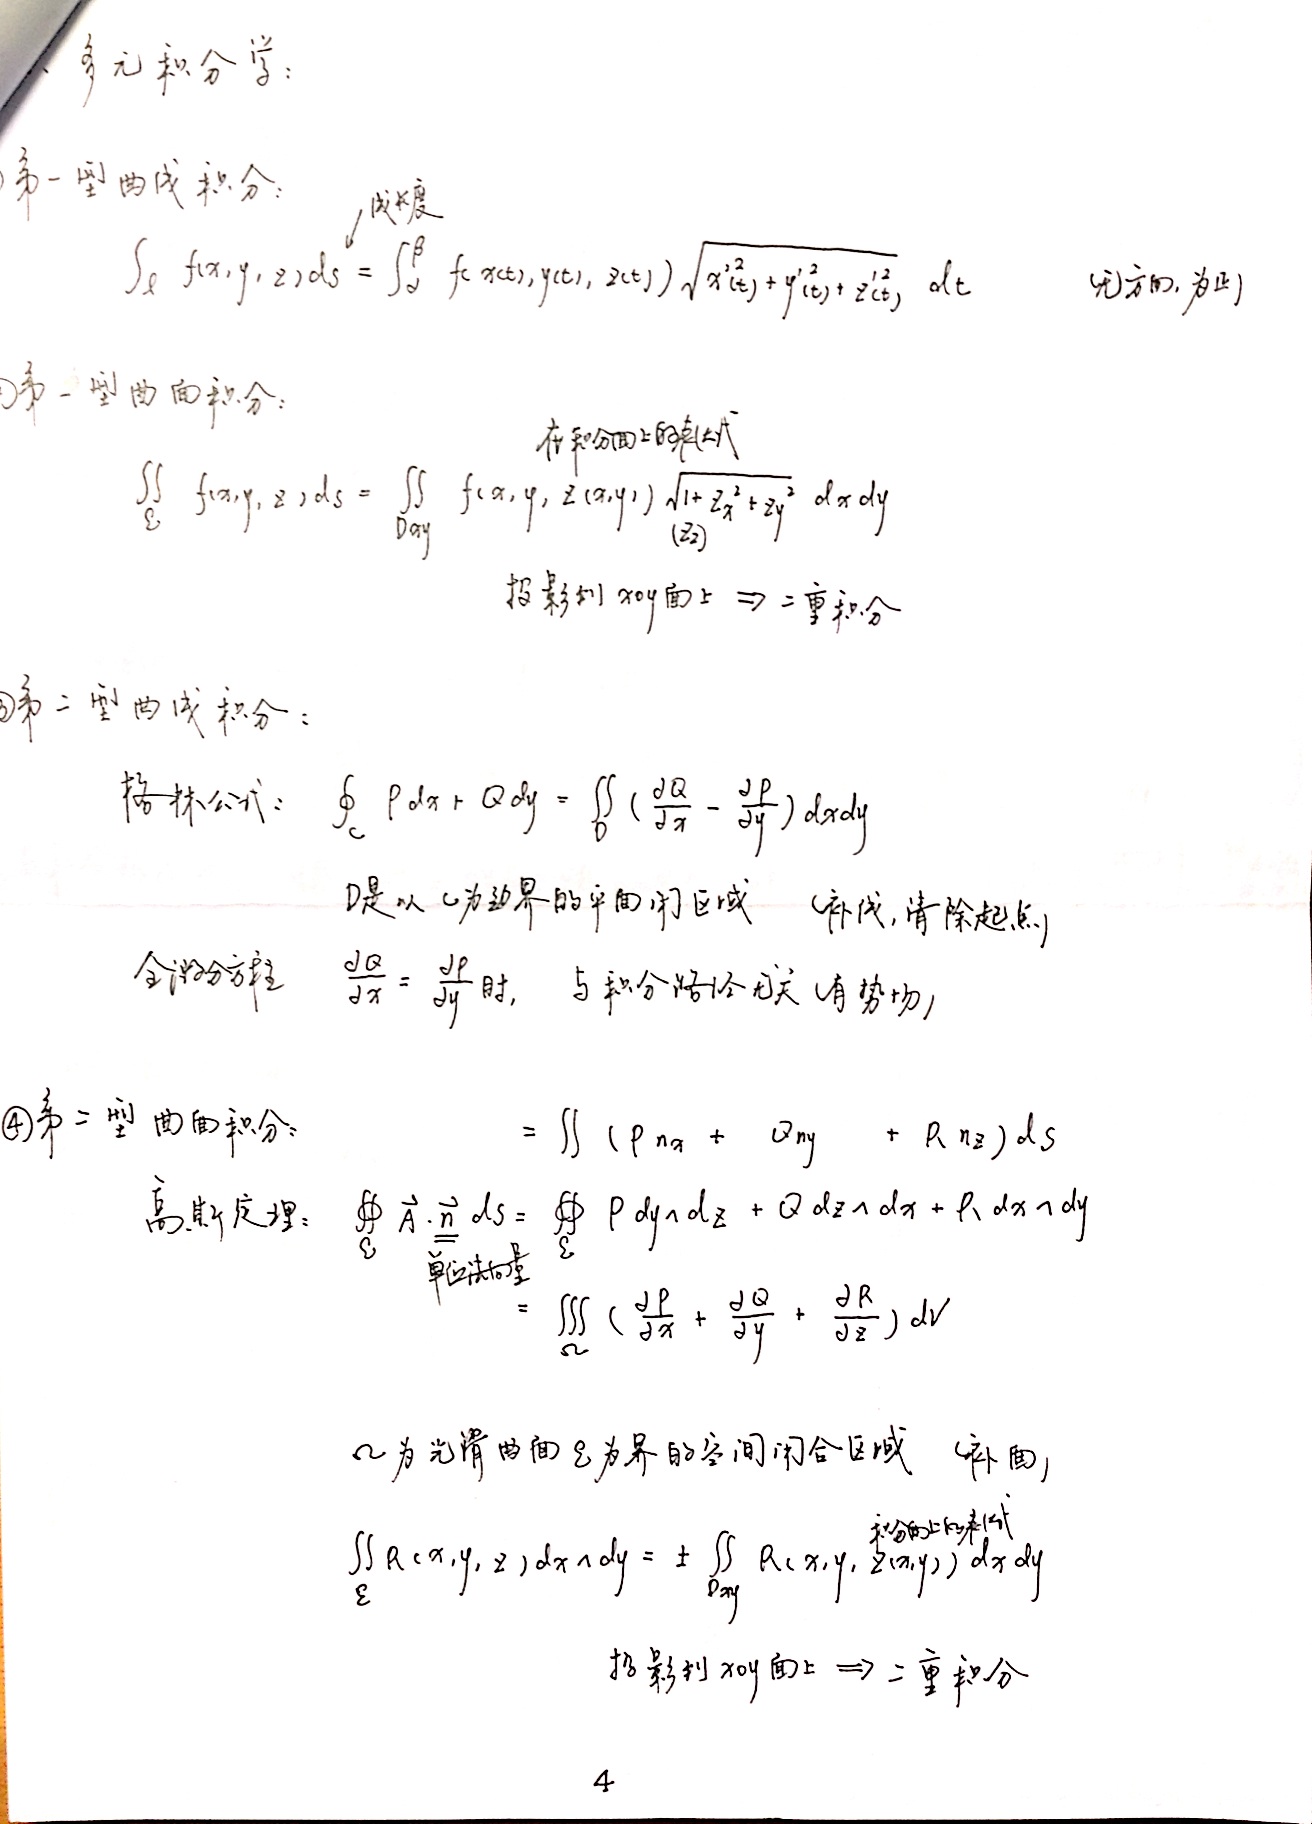 、多元积分学:
①第一型曲线积分:
线长度
∫_l f(x, y, z) ds = ∫_α^β f( x(t), y(t), z(t) ) √(x'²(t) + y'²(t) + z'²(t)) dt (无方向, 为正)
②第一型曲面积分:
在积分面上的表达式
∬_Σ f(x, y, z) ds = ∬_Dxy f(x, y, z(x,y)) √(1 + z_x² + z_y²) dxdy
(z_z)
投影到xoy面上 ⇒ 二重积分
③第二型曲线积分:
格林公式: ∮_C Pdx + Qdy = ∬_D (∂Q/∂x - ∂P/∂y) dxdy
D是以C为边界的平面闭区域 (补线, 清除起点)
全微分方程 ∂Q/∂x = ∂P/∂y 时, 与积分路径无关 (有势场)
④第二型曲面积分:
= ∬ (P n_x + Q n_y + R n_z) ds
高斯定理: ∯_Σ A⃗·n⃗ ds = ∯_Σ P dy∧dz + Q dz∧dx + R dx∧dy
单位法向量
= ∭_Ω (∂P/∂x + ∂Q/∂y + ∂R/∂z) dV
Ω为光滑曲面Σ为界的空间闭合区域 (补面)
积分面上的表达式
∬_Σ R(x, y, z) dx∧dy = ± ∬_Dxy R(x, y, z(x,y)) dxdy
投影到xoy面上 ⇒ 二重积分
4